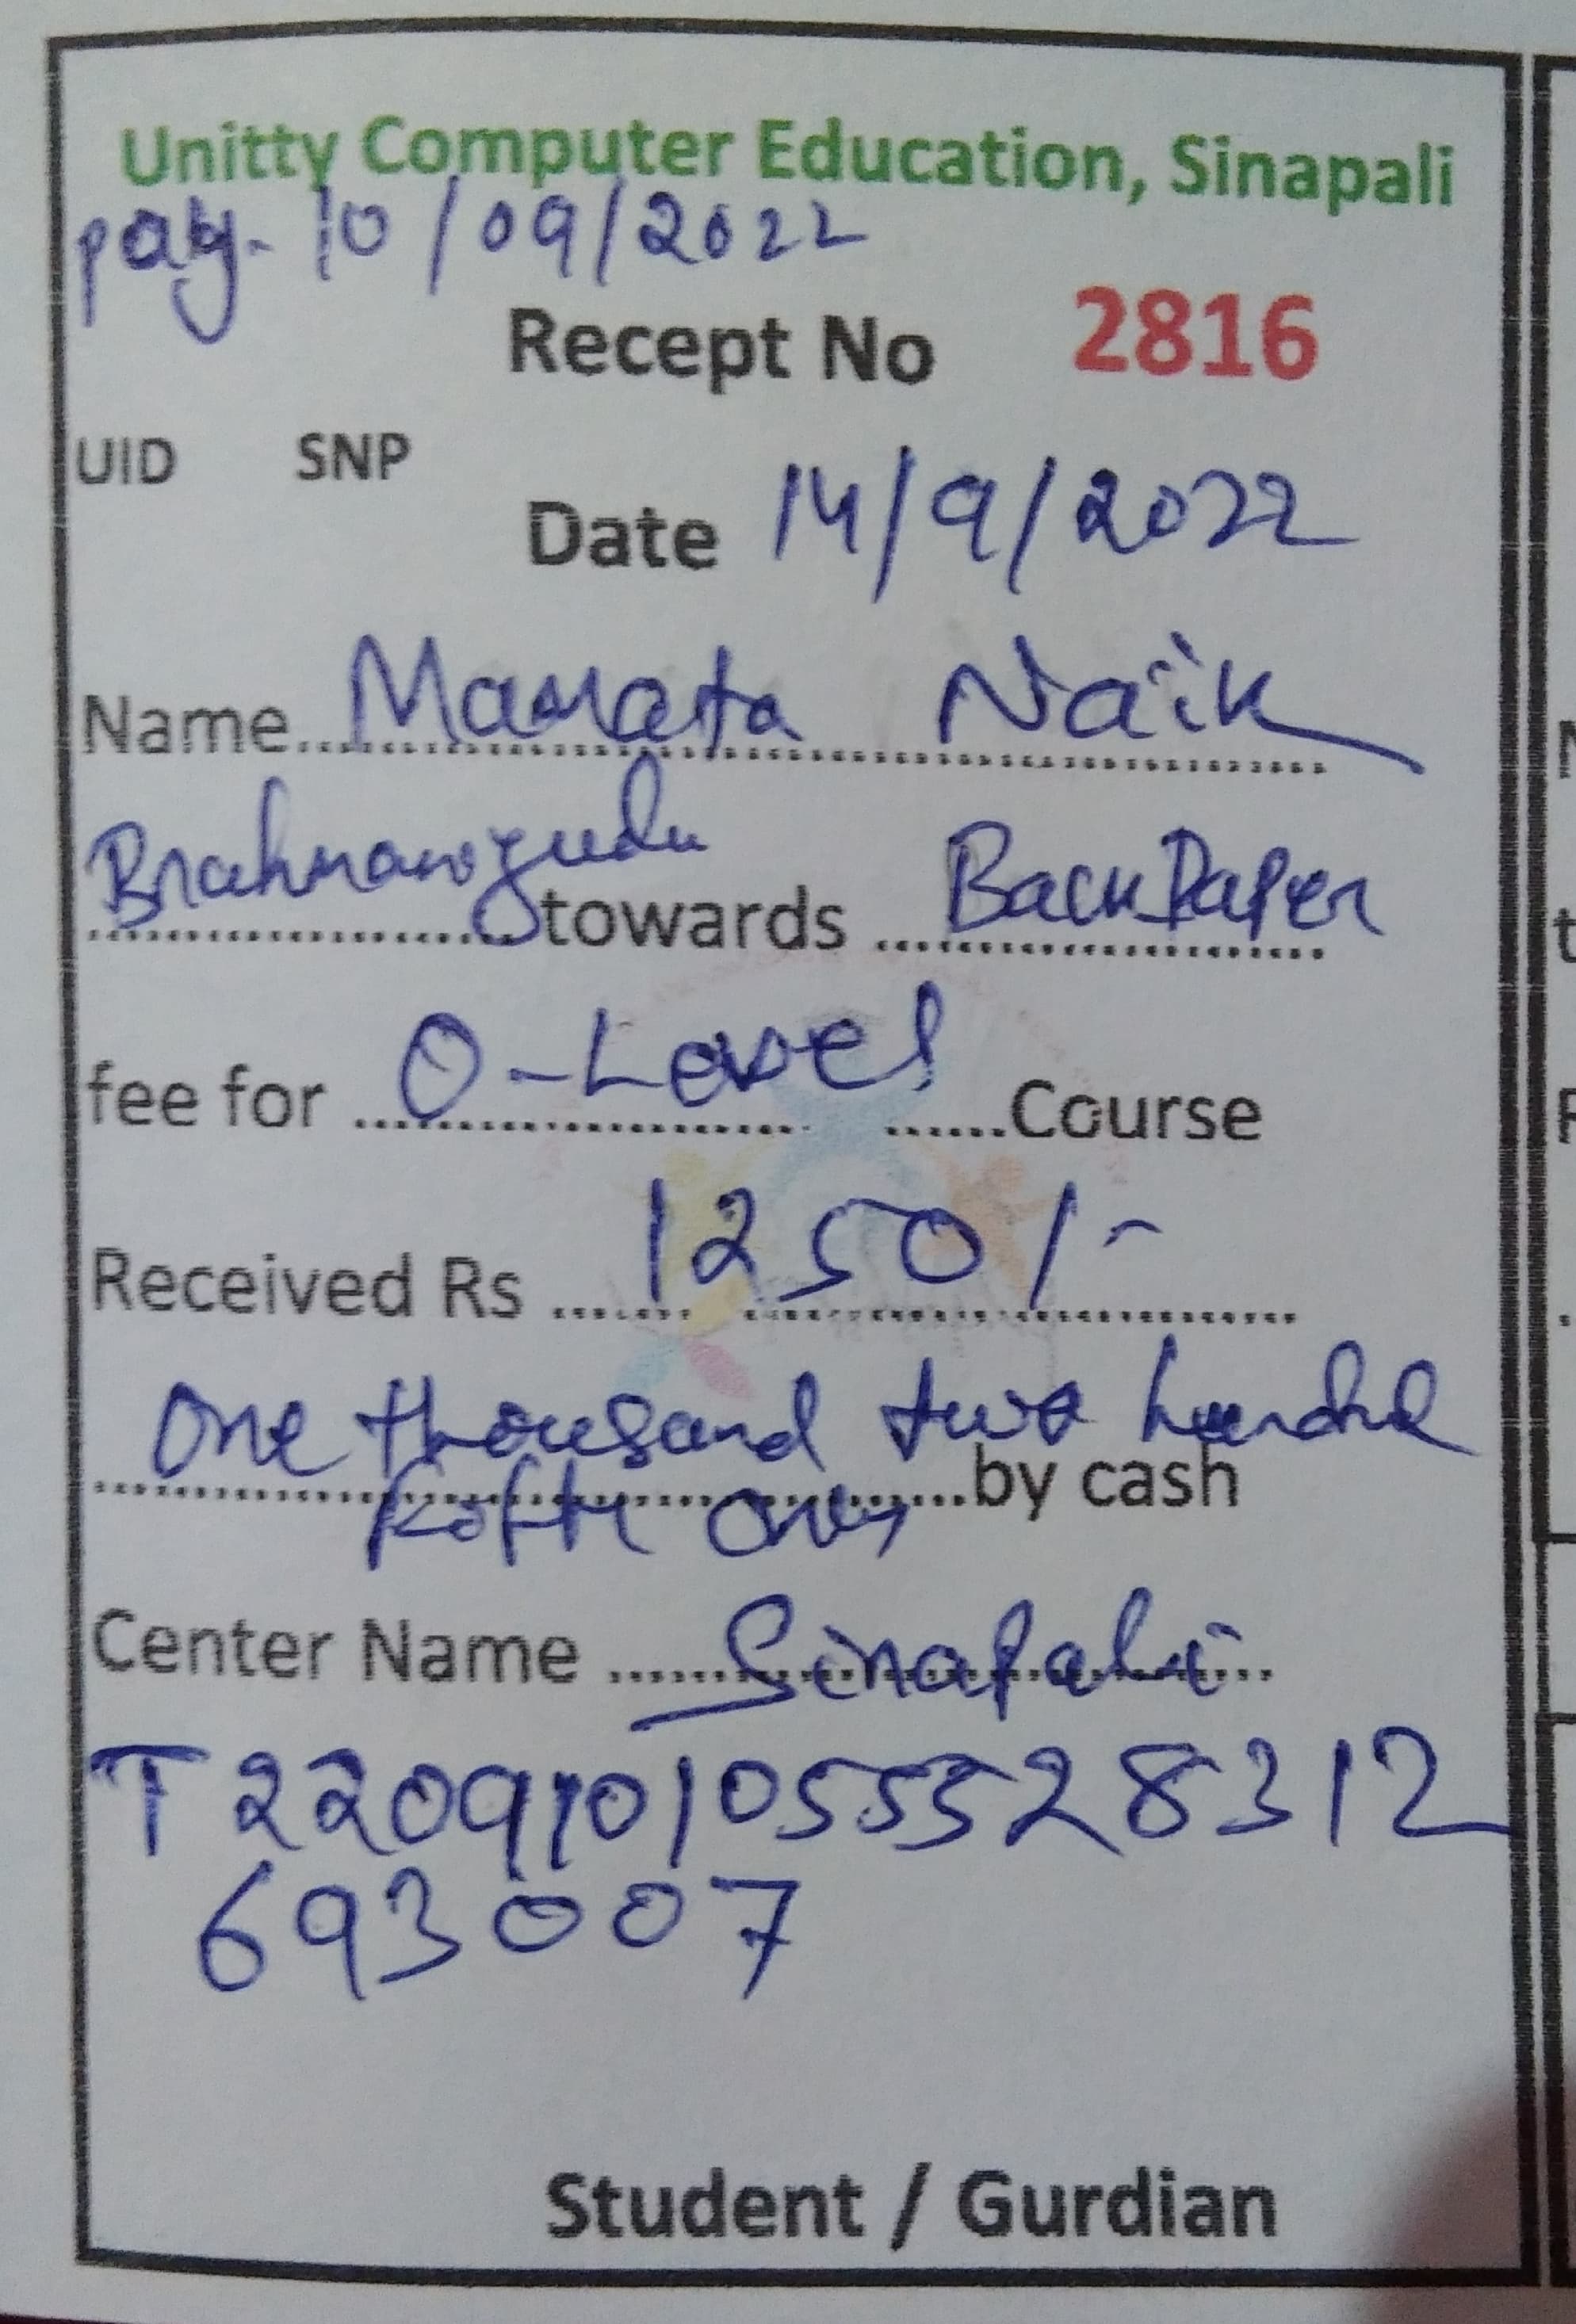 Unitty Computer Education, Sinapali
pay. 10/09/2022
Recept No 2816
UID SNP
Date 14/9/2022
Name Mamata Naik
towards BackPaper
fee for O-Level Course
Received Rs 1250/-
One thousand two
by cash
Center Name Sinapali
T 2209101055528312
693007
Student / Gurdian